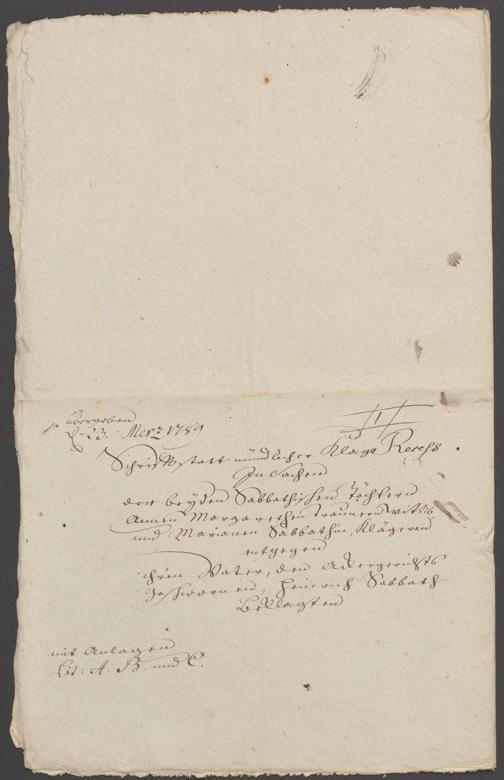 übergeben
d. 23. Merz 1789
Schrift statt mündlicher Klage Recess
In Sachen
der beyden Sabbathischen Töchtern
Annen Margarethen Wittib
und Marianen Sabbathin, Klägeren
entgegen
ihren Vater, den Ackergerichts
Geschwornen, Heinrich Sabbath
Beklagten
mit Anlagen
Lit: A. B. und C.